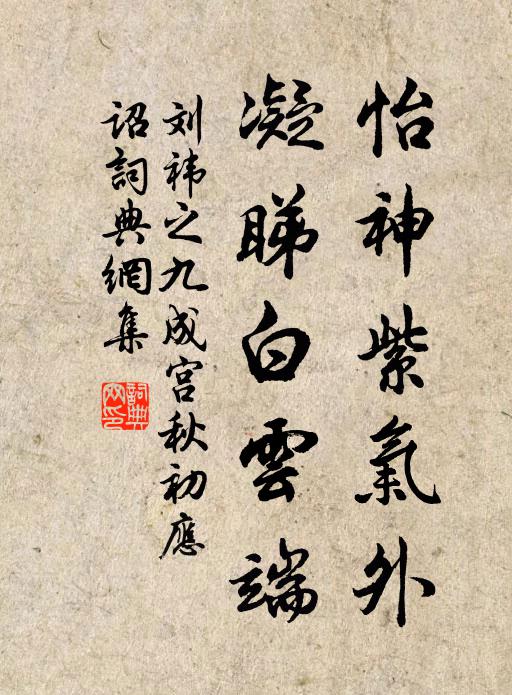 怡神紫氣外
凝睇白雲端
刘祎之九成宫秋初應
詔詞典網集
詞典網印